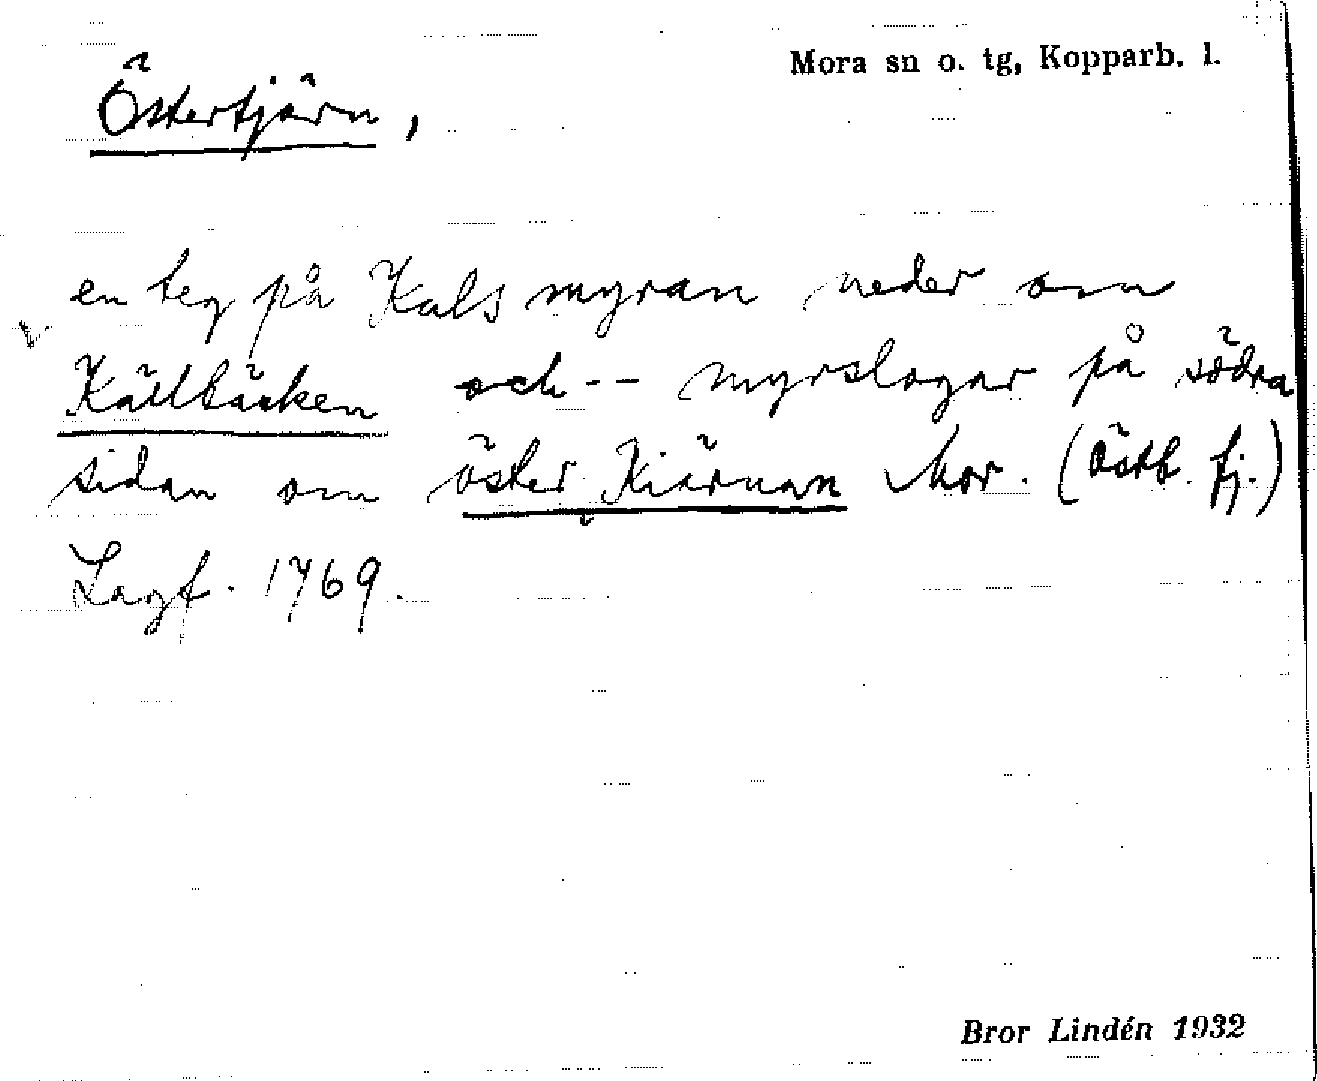 Mora sn o. tg, Kopparb. l.
Östertjärn,
en teg på Kals myran neder om
Källbäcken och -- myrslogar på södra
sidan om öster Kiärnan Mor. (Östb. fj.)
Lagf. 1769.
Bror Lindén 1932